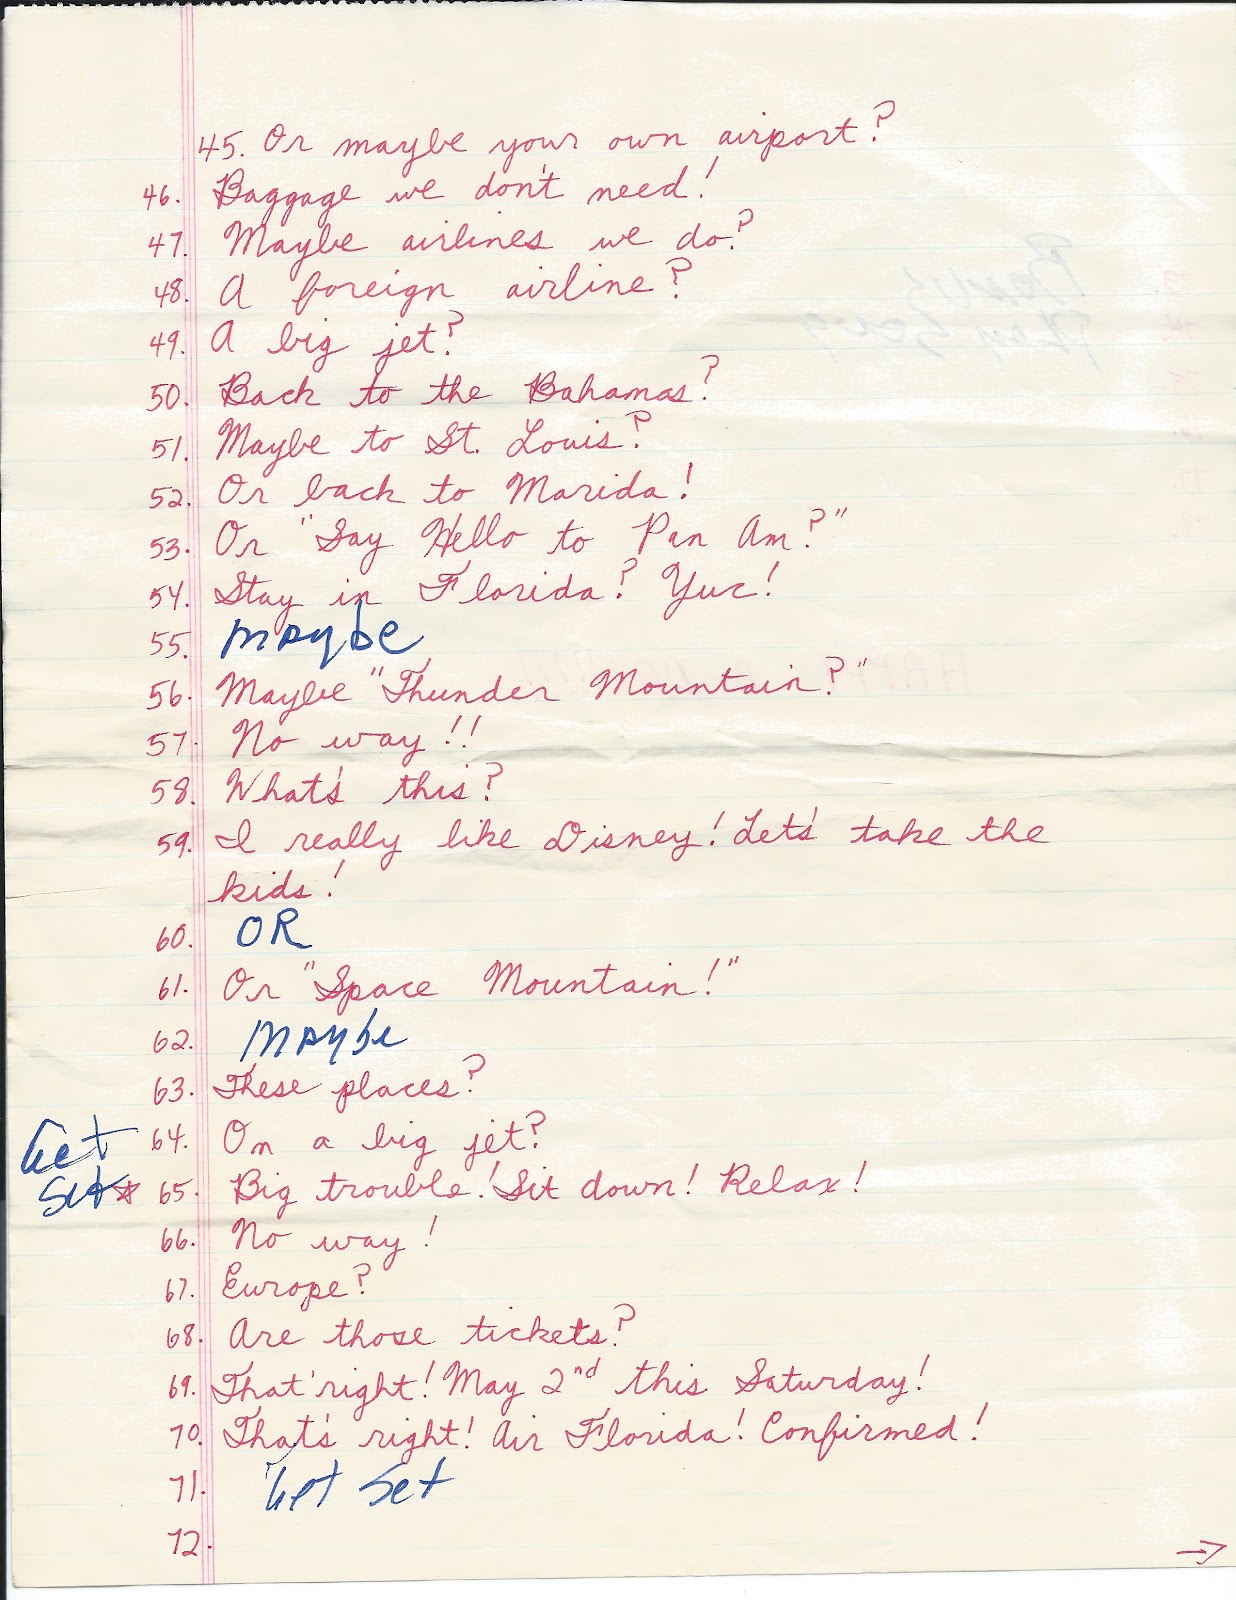 45. Or maybe your own airport?
46. Baggage we don't need!
47. Maybe airlines we do?
48. A foreign airline?
49. A big jet?
50. Back to the Bahamas?
51. Maybe to St. Louis?
52. Or back to Marida!
53. Or "Say Hello to Pan Am?"
54. Stay in Florida? Yuc!
55. MAYbe
56. Maybe "Thunder Mountain?"
57. No way!!
58. What's this?
59. I really like Disney! Let's take the
kids!
60. OR
61. Or "Space Mountain!"
62. MAYbe
63. These places?
Get 64. On a big jet?
Set ☆ 65. Big trouble! Sit down! Relax!
66. No way!
67. Europe?
68. Are those tickets?
69. That'right! May 2nd this Saturday!
70. That's right! Air Florida! Confirmed!
71. Get Set
72.
→